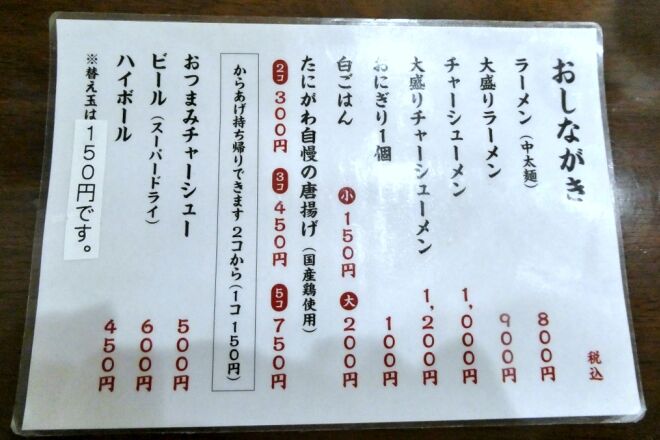 おしながき
税込
ラーメン（中太麺） 800円
大盛りラーメン 900円
チャーシューメン 1,000円
大盛りチャーシューメン 1,200円
おにぎり1個 100円
白ごはん 小 150円 大 200円
たにがわ自慢の唐揚げ（国産鶏使用）
2コ 300円 3コ 450円 5コ 750円
からあげ持ち帰りできます 2コから（1コ 150円）
おつまみチャーシュー 500円
ビール（スーパードライ） 600円
ハイボール 450円
※替え玉は150円です。